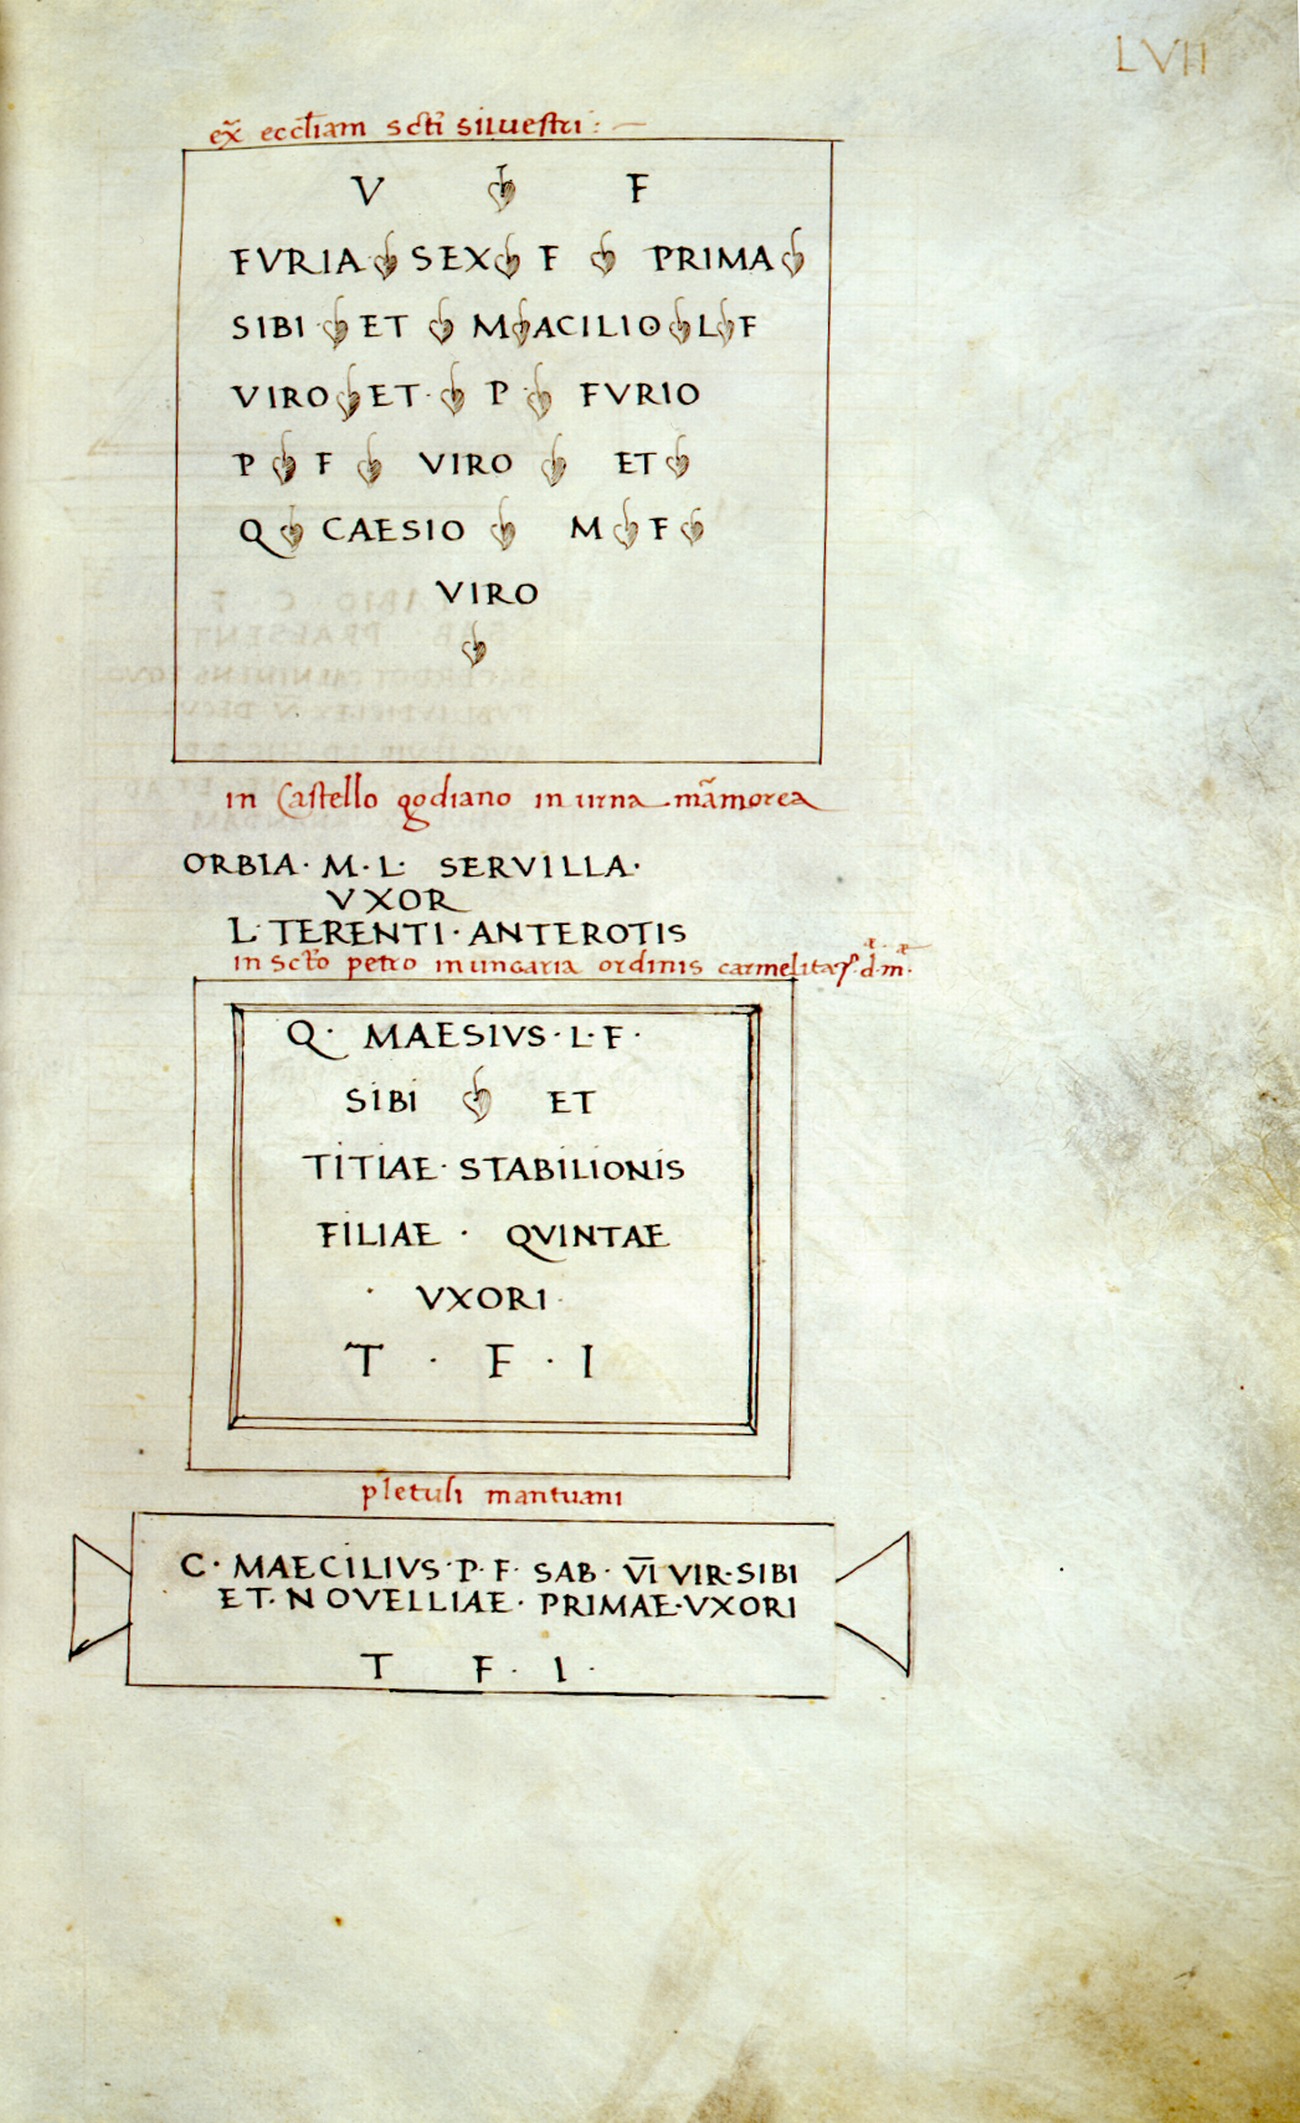 LVII
ex̄ eccl̄iam sct̄i siluestri : —
V ❦ F
FVRIA ❦ SEX ❦ F ❦ PRIMA ❦
SIBI ❦ ET ❦ M ❦ ACILIO ❦ L ❦ F
VIRO ❦ ET · ❦ P ❦ FVRIO
P ❦ F ❦ VIRO ❦ ET ❦
Q ❦ CAESIO ❦ M ❦ F ❦
VIRO
❦
in Castello godiano in urna māmorea
ORBIA · M · L · SERVILLA ·
VXOR
L · TERENTI · ANTEROTIS
in sct̄o petro in ungaria ordinis
Q · MAESIVS · L · F ·
SIBI ❦ ET
TITIAE · STABILIONIS
FILIAE · QVINTAE
· VXORI ·
T · F · I
mantuani
C · MAECILIVS · P · F · SAB · V̅I̅ VIR · SIBI
ET · NOVELLIAE · PRIMAE · VXORI
T F · I ·